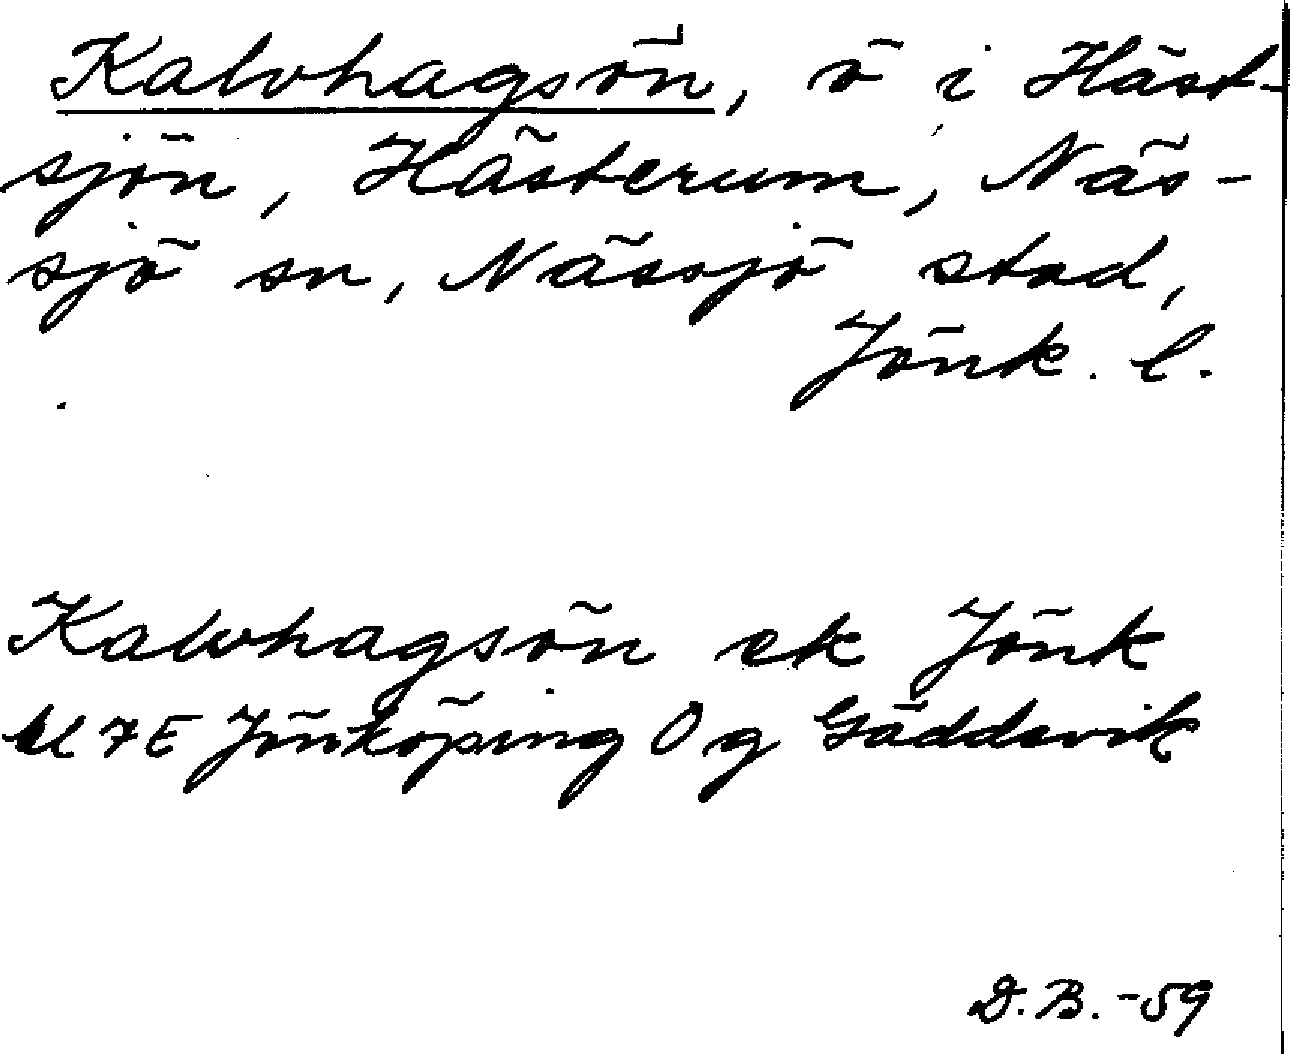 Kalvhagsön, ö i Häst-
sjön, Hästerum, Näs-
sjö sn, Nässjö stad,
Jönk. l.
Kalvhagsön ek Jönk
bl 7E Jönköping Og Gäddevik
D.B. -59